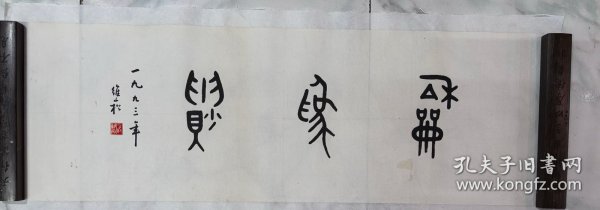 龢為貴
一九九三年
維松
孔夫子旧书网
www.kongfz.com